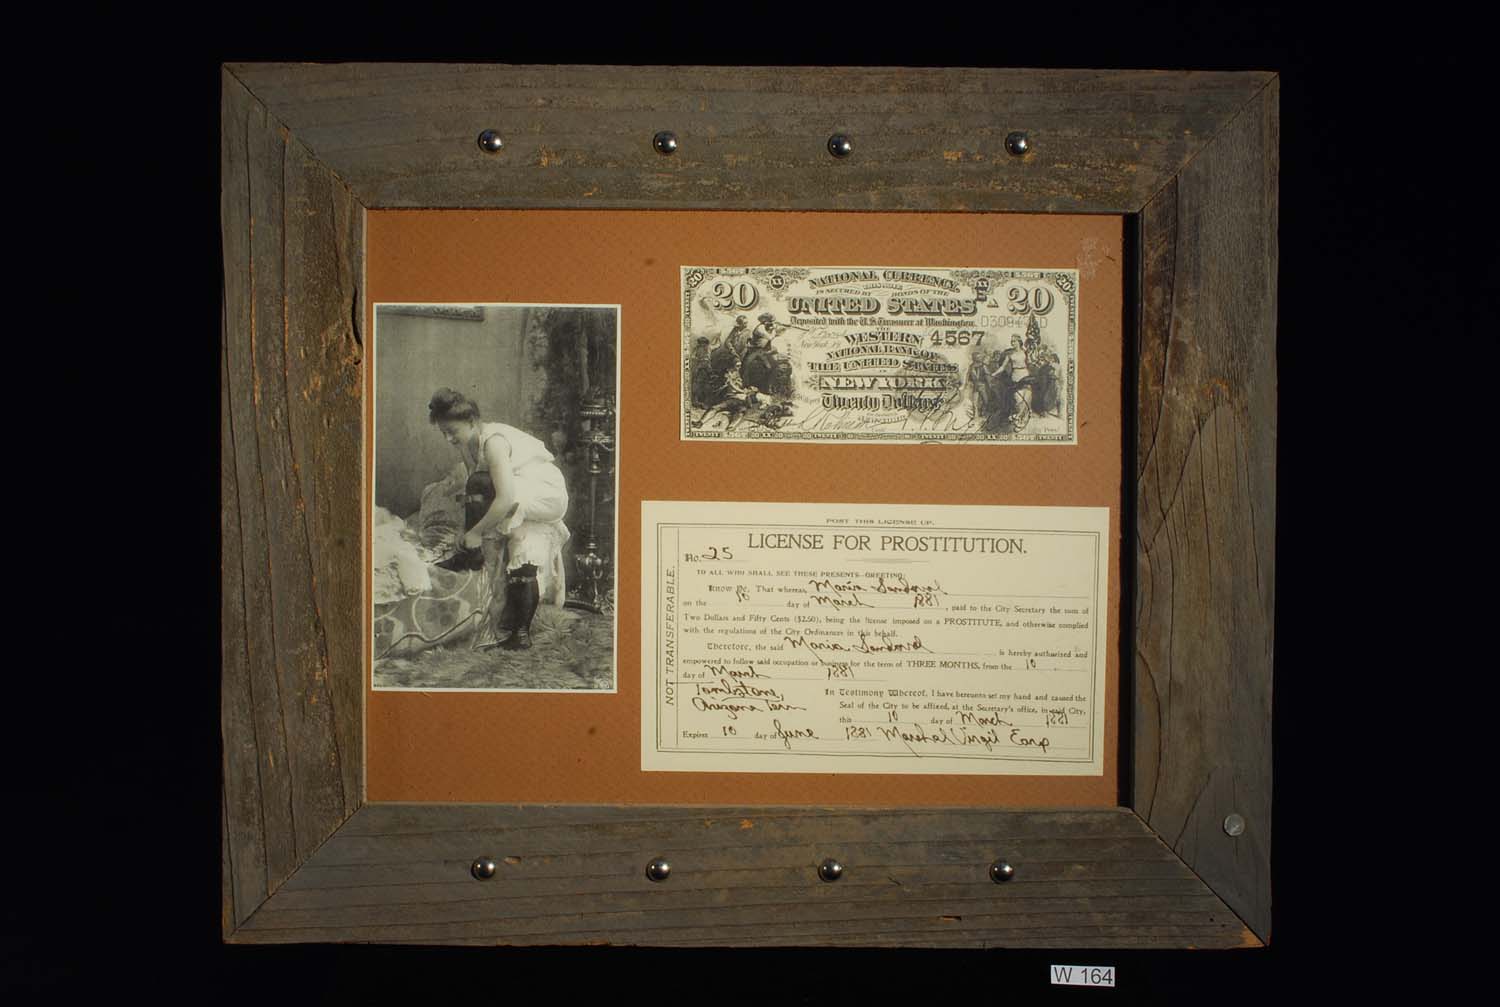 20 NATIONAL CURRENCY 20
THIS NOTE
IS SECURED BY BONDS OF THE
UNITED STATES
Deposited with the U.S. Treasurer at Washington
THE
WESTERN 4567
NATIONAL BANK OF
THE UNITED STATES
IN
NEW YORK
Twenty Dollars
POST THIS LICENSE UP.
LICENSE FOR PROSTITUTION.
No. 25
NOT TRANSFERABLE.
TO ALL WHO SHALL SEE THESE PRESENTS—GREETING:
Know Ye, That whereas, Maria Sandoval
on the 10 day of March 1881, paid to the City Secretary the sum of
Two Dollars and Fifty Cents ($2.50), being the license imposed on a PROSTITUTE, and otherwise complied
with the regulations of the City Ordinances in this behalf.
Therefore, the said Maria Sandoval is hereby authorized and
empowered to follow said occupation or business for the term of THREE MONTHS, from the 10
day of March 1881
Tombstone,
Arizona Terr
In Testimony Whereof, I have hereunto set my hand and caused the
Seal of the City to be affixed, at the Secretary's office, in said City,
this 10 day of March 1881
Expires 10 day of June 1881 Marshal Virgil Earp
W 164